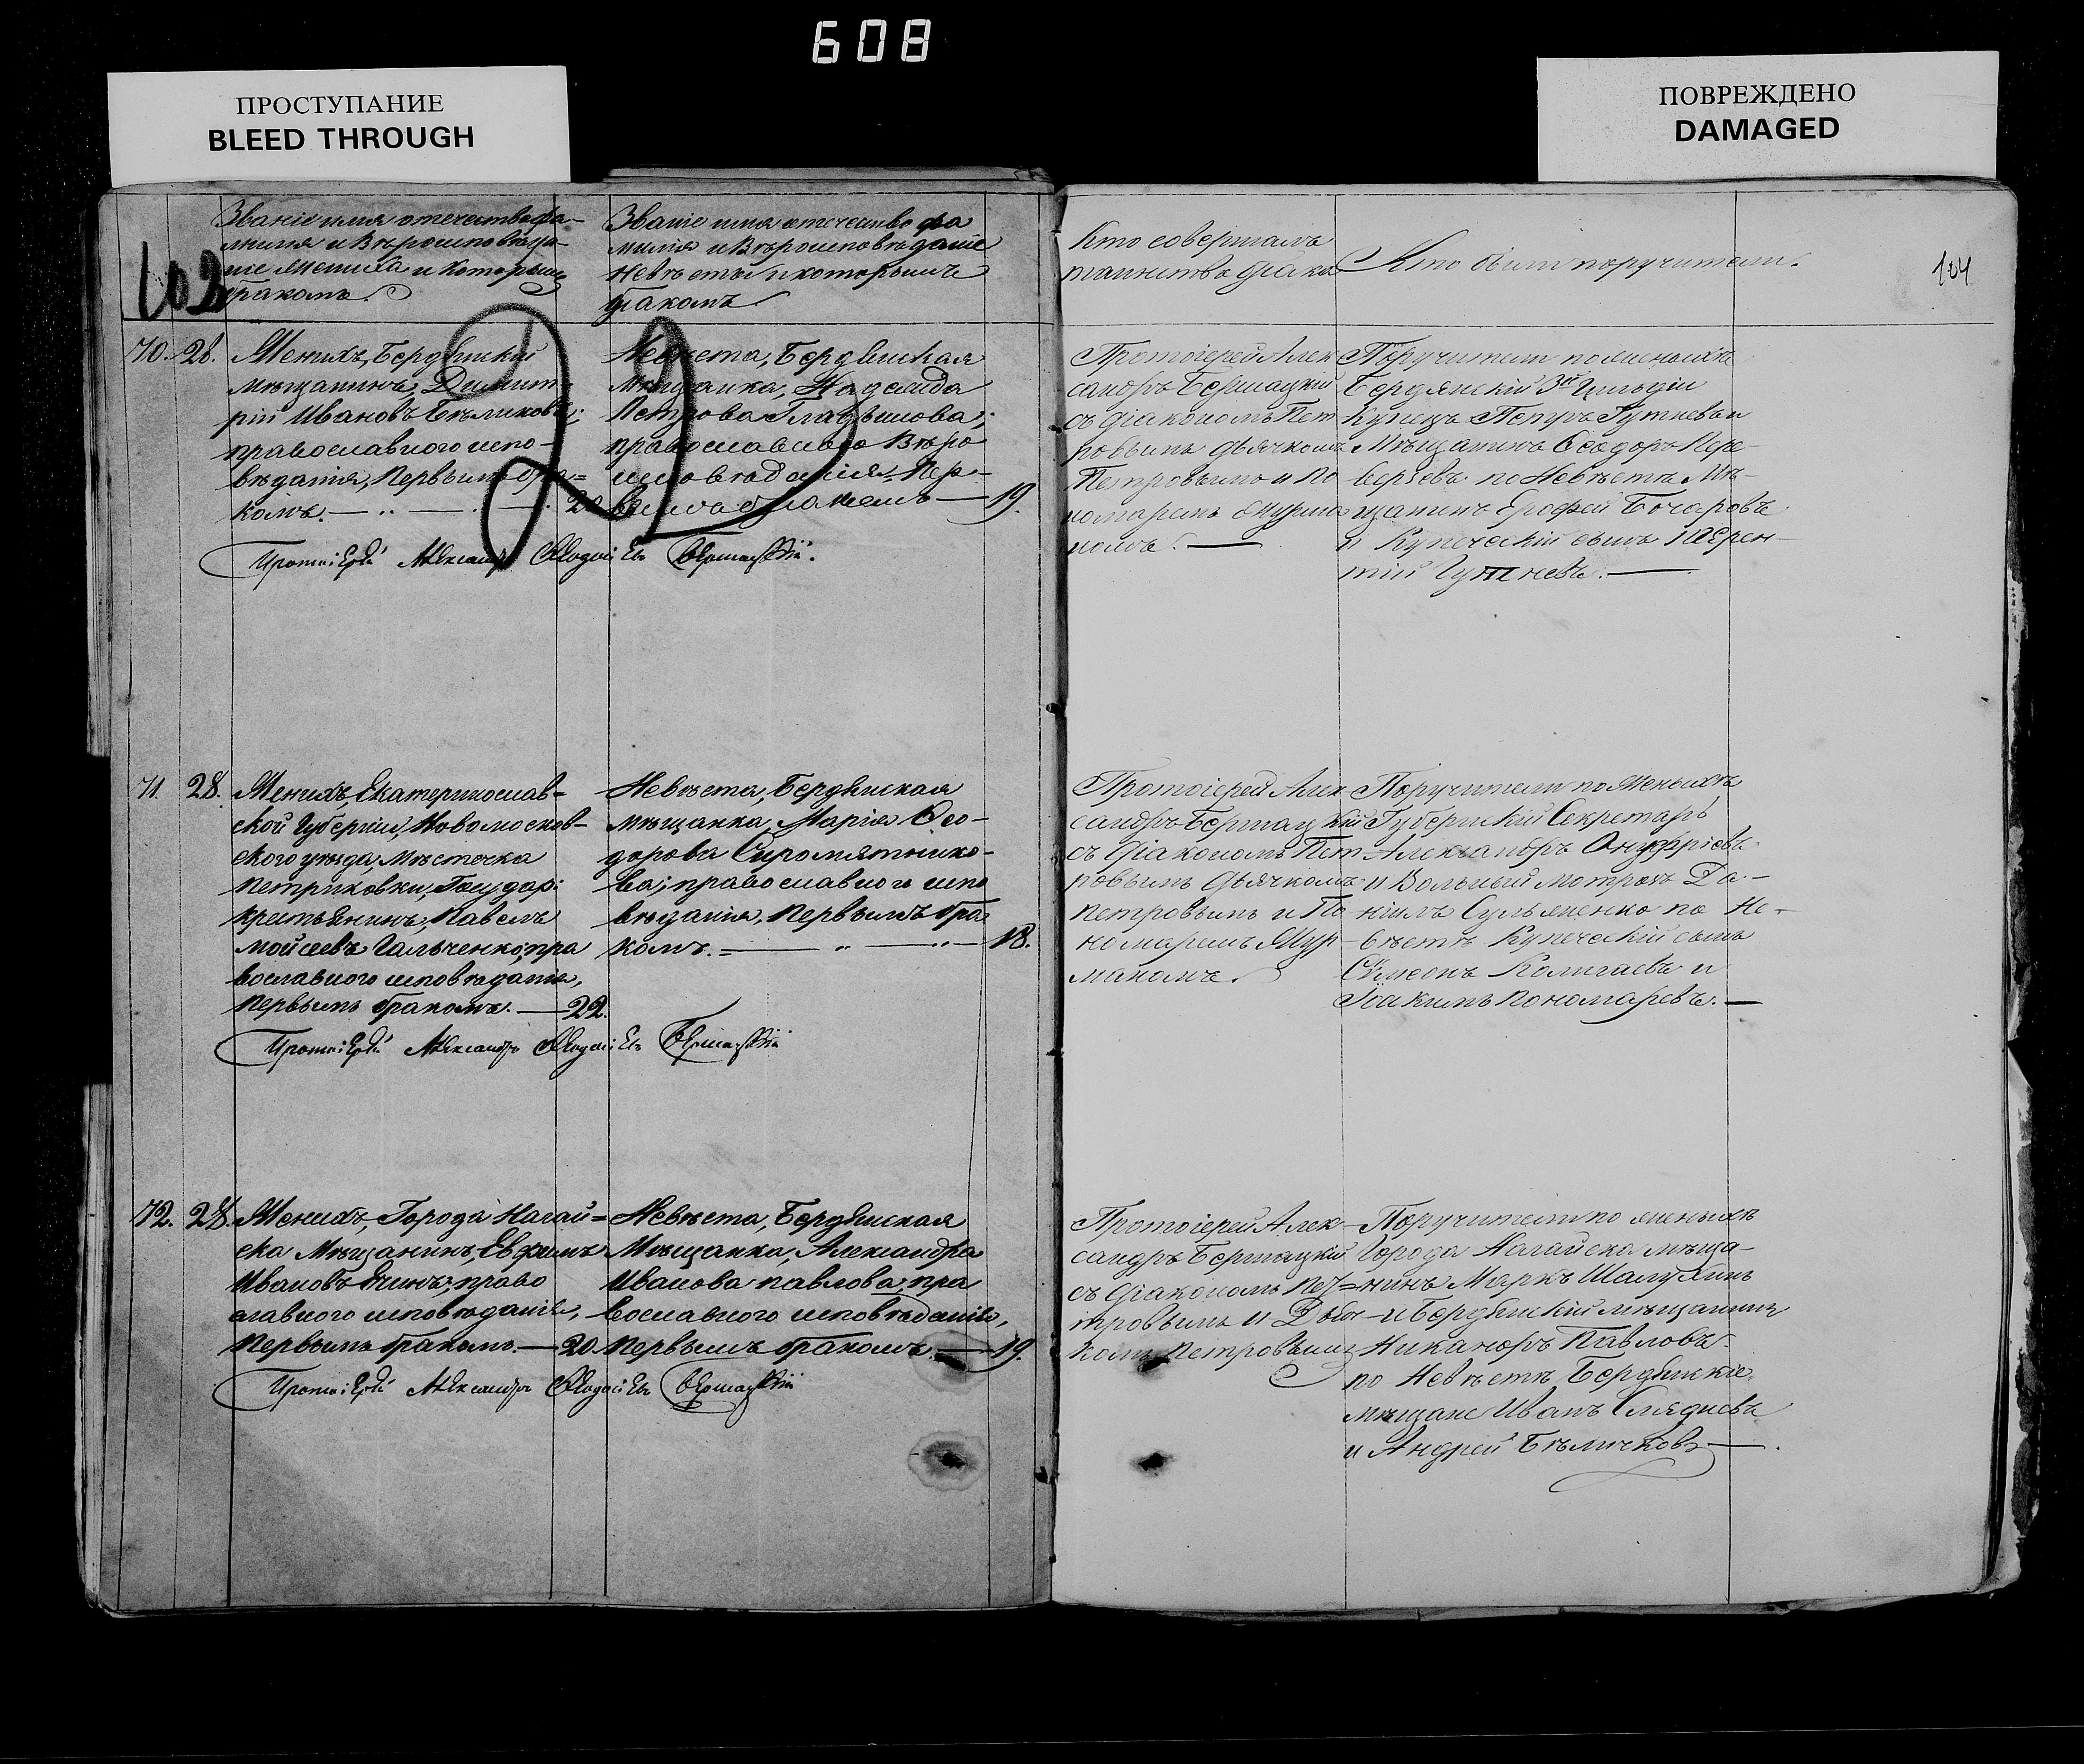 608
ПРОСТУПАНИЕ
BLEED THROUGH
ПОВРЕЖДЕНО
DAMAGED
Званіе имя отечество фа-
милія и Вѣроисповѣда-
ніе Жениха и которымъ
бракомъ.
Званіе имя отечество фа
милія и Вѣроисповѣданіе
Невѣсты и которымъ
бракомъ
Кто совершалъ
таинство брака
Кто были поручители.
103
104
70. 28.
Женихъ, Бердянскій
мѣщанинъ, Димит-
рій Ивановъ Бѣликовъ;
православного испо-
вѣданія, Первымъ бра=
комъ. 20
Невѣста, Бердянская
мѣщанка, Надежда
Петрова
православного Вѣро
исповѣданія, Пер-
вымъ бракомъ — 19.
Протоіерей Алек
сандръ Бершацкій
съ діакономъ Пет
ровымъ дьячкомъ
Петровымъ и По
номаремъ
Поручители по женихѣ
Бердянскій 3й Гильдіи
Купецъ Петръ и
Мѣщанинъ Ѳеодоръ Пере-
верзевъ по Невѣстѣ Мѣ-
щанинъ Ерофей Бочаровъ
и Купеческій сынъ Терен-
тій
Протоіерей Александръ Ѳеодосіевъ Бершацкій.
71. 28.
Женихъ, Екатеринослав-
ской Губерніи, Новомосков-
ского уѣзда, Мѣстечка
Петриковки, Государ:
крестьянинъ, Павелъ
Мойсеевъ Гальченко, пра
вославного исповѣданія,
Первымъ бракомъ. — 22.
Невѣста, Бердянская
мѣщанка, Марія Ѳео-
дорова Сыромятнико-
ва; православного испо
вѣданія, Первымъ бра
комъ. — 18.
Протоіерей Алек-
сандръ Бершацкій
съ діакономъ Пет
ровымъ дьячкомъ
Петровымъ и По
номаремъ Шур-
маномъ.
Поручители по Женихѣ
Губернскій Секретарь
Александръ Онуфріевъ
и Вольный Матросъ Да-
ніилъ Сульменко по Не-
вѣстѣ Купеческій сынъ
Сѵмеонъ и
Іоакимъ Пономаревъ. —
Протоіерей Александръ Ѳеодосіевъ Бершацкій
72. 28.
Женихъ, Города Нагай=
ска Мѣщанинъ, Евфимъ
Ивановъ право
славного исповѣданія,
Первымъ бракомъ. — 20.
Невѣста, Бердянская
Мѣщанка, Александра
Иванова Павлова, пра
вославного исповѣданія,
Первымъ бракомъ. — 19.
Протоіерей Алек-
сандръ Бершацкій
съ діакономъ Пе=
тровымъ и Дьяч-
комъ Петровымъ
Поручители по женихѣ
Города Нагайска мѣща-
нинъ Маркъ Шалухинъ
и Бердянскій мѣщанинъ
Никаноръ Павловъ.
по Невѣстѣ Бердянскіе
мѣщане Иванъ
и Андрей Бѣличковъ —.
Протоіерей Александръ Ѳеодосіевъ Бершацкій